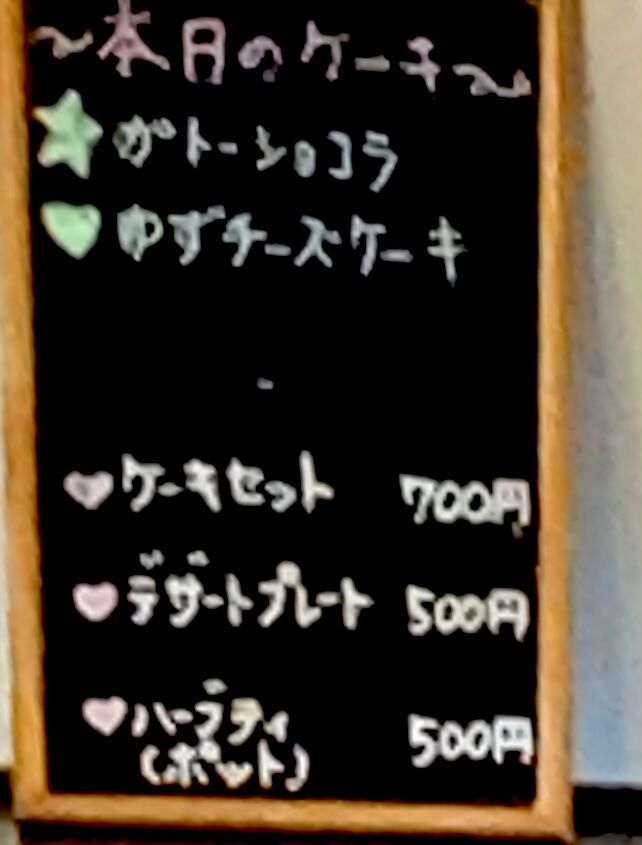 ～本月のケーキ～
ガトーショコラ
ゆずチーズケーキ
ケーキセット 700円
デザートプレート 500円
ハーブティ 500円
(ポット)